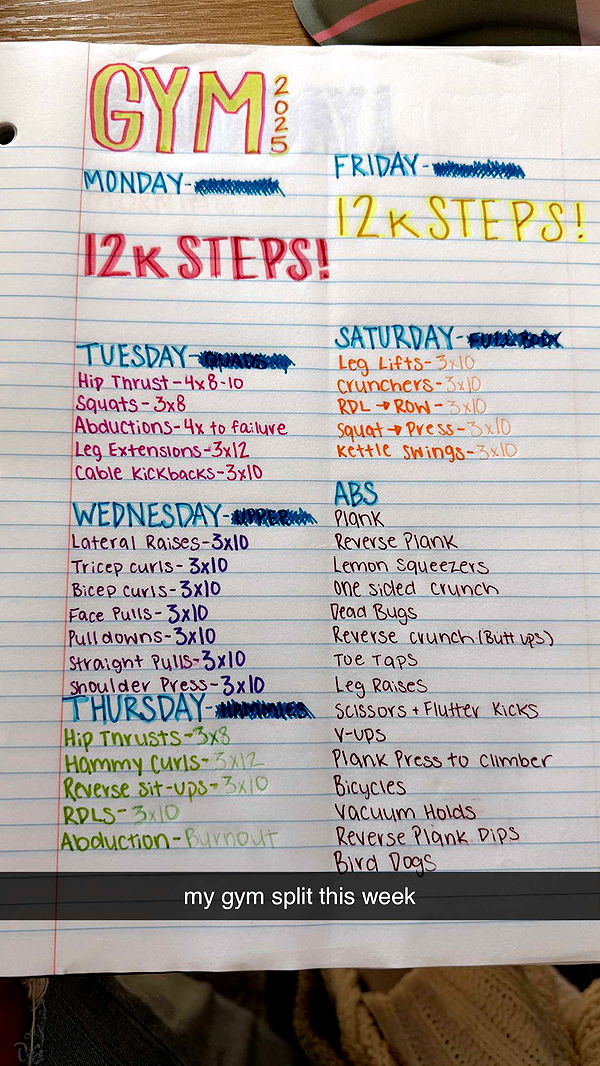 GYM 2025
MONDAY-
12K STEPS!
TUESDAY- QUADS
Hip Thrust-4x8-10
Squats-3x8
Abductions-4x to failure
Leg Extensions-3x12
Cable Kickbacks-3x10
WEDNESDAY- UPPER
Lateral Raises-3x10
Tricep curls-3x10
Bicep curls-3x10
Face Pulls-3x10
Pulldowns-3x10
Straight Pulls-3x10
Shoulder Press-3x10
THURSDAY- HAMMIES
Hip Thrusts-3x8
Hammy Curls-3x12
Reverse sit-ups-3x10
RDLS-3x10
Abduction-Burnout
FRIDAY-
12K STEPS!
SATURDAY- FULL BODY
Leg Lifts-3x10
Crunchers-3x10
RDL→ROW-3x10
Squat→Press-3x10
Kettle swings-3x10
ABS
Plank
Reverse Plank
Lemon Squeezers
One sided crunch
Dead Bugs
Reverse crunch (Butt ups)
Toe Taps
Leg Raises
Scissors + Flutter Kicks
V-ups
Plank Press to Climber
Bicycles
Vacuum Holds
Reverse Plank Dips
Bird Dogs
my gym split this week